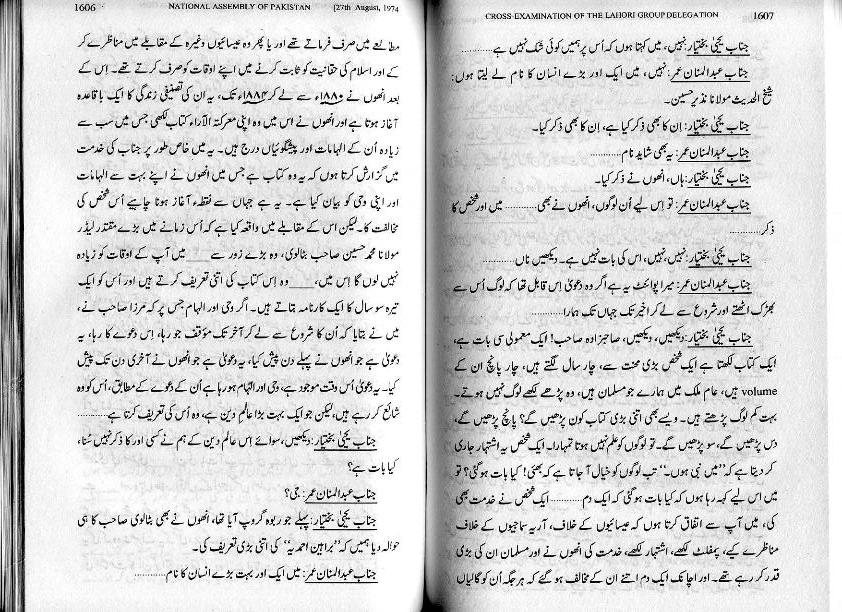 1606 NATIONAL ASSEMBLY OF PAKISTAN [27th August, 1974
مطالعے میں صرف فرماتے تھے اور یا پھر وہ عیسائیوں وغیرہ کے مقابلے میں مناظرے کر
کے اور اسلام کی حقانیت کو ثابت کرنے میں اپنے اوقات کو صرف کرتے تھے۔ اِس کے
بعد انھوں نے ۱۸۸۰ء سے لے کر ۱۸۸۴ء تک، یہ ان کی تصنیفی زندگی کا ایک باقاعدہ
آغاز ہوتا ہے اور انھوں نے اس میں وہ اپنی معرکۃ الآراء کتاب لکھی جس میں سب سے
زیادہ اُن کے الہامات اور پیشگوئیاں درج ہیں۔ یہ میں خاص طور پر جناب کی خدمت
میں گزارش کرتا ہوں کہ یہ وہ کتاب ہے جس میں انھوں نے اپنے بہت سے الہامات
اور اپنی وحی کو بیان کیا ہے۔ یہ ہے جہاں سے نقطۂ آغاز ہونا چاہیے اُس شخص کی
مخالفت کا۔ لیکن اس کے مقابلے میں واقعہ کیا ہے کہ اُس زمانے میں بڑے مقتدر لیڈر
مولانا محمد حسین صاحب بٹالوی، وہ بڑے زور سے ____ میں آپ کے اوقات کو زیادہ
نہیں لوں گا اِس میں، ____ وہ اِس کتاب کی اتنی تعریف کرتے ہیں اور اُس کو ایک
تیرہ سو سال کا ایک کارنامہ بتاتے ہیں۔ اگر وحی اور الہام جس پر کہ مرزا صاحب نے،
میں نے بتایا کہ اُن کا شروع سے لے کر آخر تک مؤقف جو رہا، اِس دعوے کا رہا، یہ
دعویٰ ہے جو انھوں نے پہلے دن پیش کیا، یہ دعویٰ ہے جو انھوں نے آخری دن تک پیش
کیا۔ یہ دعویٰ اُس وقت موجود ہے، وحی اور الہام ہو رہا ہے اُن کے دعوے کے مطابق، اُس کو وہ
شائع کر رہے ہیں، لیکن جو ایک بہت بڑا عالمِ دین ہے، وہ اُس کی تعریف کرتا ہے............
جناب یحییٰ بختیار: دیکھیں، سوائے اس عالم دین کے ہم نے کسی اور کا ذکر نہیں سُنا،
کیا بات ہے؟
جناب عبدالمنان عمر: جی؟
جناب یحییٰ بختیار: پہلے جو ربوہ گروپ آیا تھا، انھوں نے بھی بٹالوی صاحب کا ہی
حوالہ دیا ہمیں کہ ”براہین احمدیہ“ کی اتنی بڑی تعریف کی۔
جناب عبدالمنان عمر: میں ایک اور بہت بڑے انسان کا نام............
CROSS-EXAMINATION OF THE LAHORI GROUP DELEGATION 1607
جناب یحییٰ بختیار: نہیں، میں کہتا ہوں کہ اُس پر ہمیں کوئی شک نہیں ہے............
جناب عبدالمنان عمر: نہیں، میں ایک اور بڑے انسان کا نام لے لیتا ہوں:
شیخ الحدیث مولانا نذیر حسین۔
جناب یحییٰ بختیار: اِن کا بھی ذکر کیا ہے، اِن کا بھی ذکر کیا۔
جناب عبدالمنان عمر: یہ بھی شاید نام............
جناب یحییٰ بختیار: ہاں، انھوں نے ذکر کیا۔
جناب عبدالمنان عمر: تو اِس لیے اُن لوگوں، انھوں نے بھی............ میں اور شخص کا
ذکر............
جناب یحییٰ بختیار: نہیں، نہیں، اس کی بات نہیں ہے۔ دیکھیں ناں............
جناب عبدالمنان عمر: میرا پوائنٹ یہ ہے اگر وہ دعویٰ اِس قابل تھا کہ لوگ اُس سے
بھڑک اٹھتے اور شروع سے لے کر اخیر تک جہاں تک ہمارا............
جناب یحییٰ بختیار: دیکھیں، دیکھیں، صاحبزادہ صاحب! ایک معمولی سی بات ہے،
ایک کتاب لکھتا ہے ایک شخص بڑی محنت سے، چار سال لگتے ہیں، چار پانچ ان کے
volume ہیں، عام ملک میں ہمارے جو مسلمان ہیں، وہ پڑھے لکھے لوگ نہیں ہوتے۔
بہت کم لوگ پڑھتے ہیں۔ ویسے بھی اتنی بڑی کتاب کون پڑھیں گے؟ پانچ پڑھیں گے،
دس پڑھیں گے، سو پڑھیں گے۔ تو لوگوں کو علم نہیں ہوتا تمہارا۔ ایک شخص یہ اشتہار جاری
کر دیتا ہے کہ ”میں نبی ہوں۔“ تب لوگوں کو خیال آ جاتا ہے کہ بھئی! کیا بات ہو گئی؟ تو
میں اس لیے کہہ رہا ہوں کہ کیا بات ہو گئی کہ ایک دم............ ایک شخص نے خدمت بھی
کی، میں آپ سے اتفاق کرتا ہوں کہ عیسائیوں کے خلاف، آریہ سماجیوں کے خلاف
مناظرے کیے، پمفلٹ لکھے، اشتہار لکھے، خدمت کی انھوں نے اور مسلمان ان کی بڑی
قدر کر رہے تھے۔ اور اچانک ایک دم اتنے ان کے مخالف ہو گئے کہ ہر جگہ اُن کو گالیاں